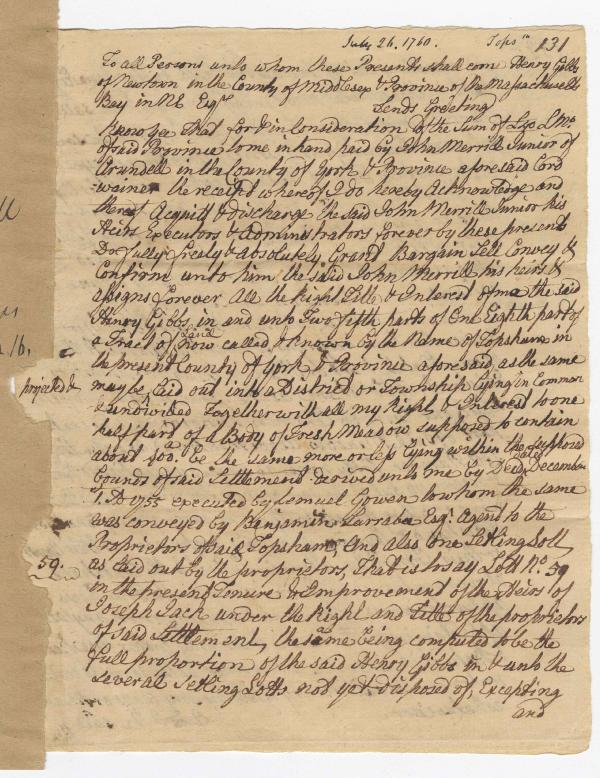 July 26. 1760. Tops^m 131
To all Persons unto whom these Presents shall come Henry Gibbs
of Newtown in the County of Middlesex & Province of the Massachusetts
Bay in NE Esq^r Sends Greeting
Know ye That for & in Consideration of the Sum of
of said Province to me in hand paid by John Merrill Junior of
Arundell in the County of York & Province aforesaid Cord
-wainer the receit whereof I do hereby Acknowledge and
thereof Acquitt & discharge the said John Merrill Junior his
Heirs Executors & Administrators forever by these presents
Do fully freely & absolutely Grant Bargain Sell Convey &
Confirm unto him the said John Merrill his heirs &
assigns forever All the Right Title & Interest of me the said
Henry Gibbs in and unto Two fifth parts of One Eighth part of
a Tract of Land now called & known by the Name of Topsham in
the present County of York & Province aforesaid, as the same
projected &
may be laid out into a District or Township lying in Common
& undivided Together with all my Right & Interest to one
half part of a Body of Fresh Meadow supposed to contain
about 400.^a be the same more or less lying within the supposed
bounds of said Settlement derived unto me by Deed dated December
1. AD 1755 executed by Lemuel Gowen to whom the same
was conveyed by Benjamin Larrabe Esq^r Agent to the
Proprietors of said Topsham, And also one Setling Lott
59.
as laid out by the proprietors, That is to say Lott N^o. 59
in the present Tenure & Improvement of the Heirs of
Joseph Jack under the Right and Title of the proprietors
of said Settlement, the same being computed to be the
full proportion of the said Henry Gibbs in & unto the
several Setling Lotts not yet disposed of, Excepting
and